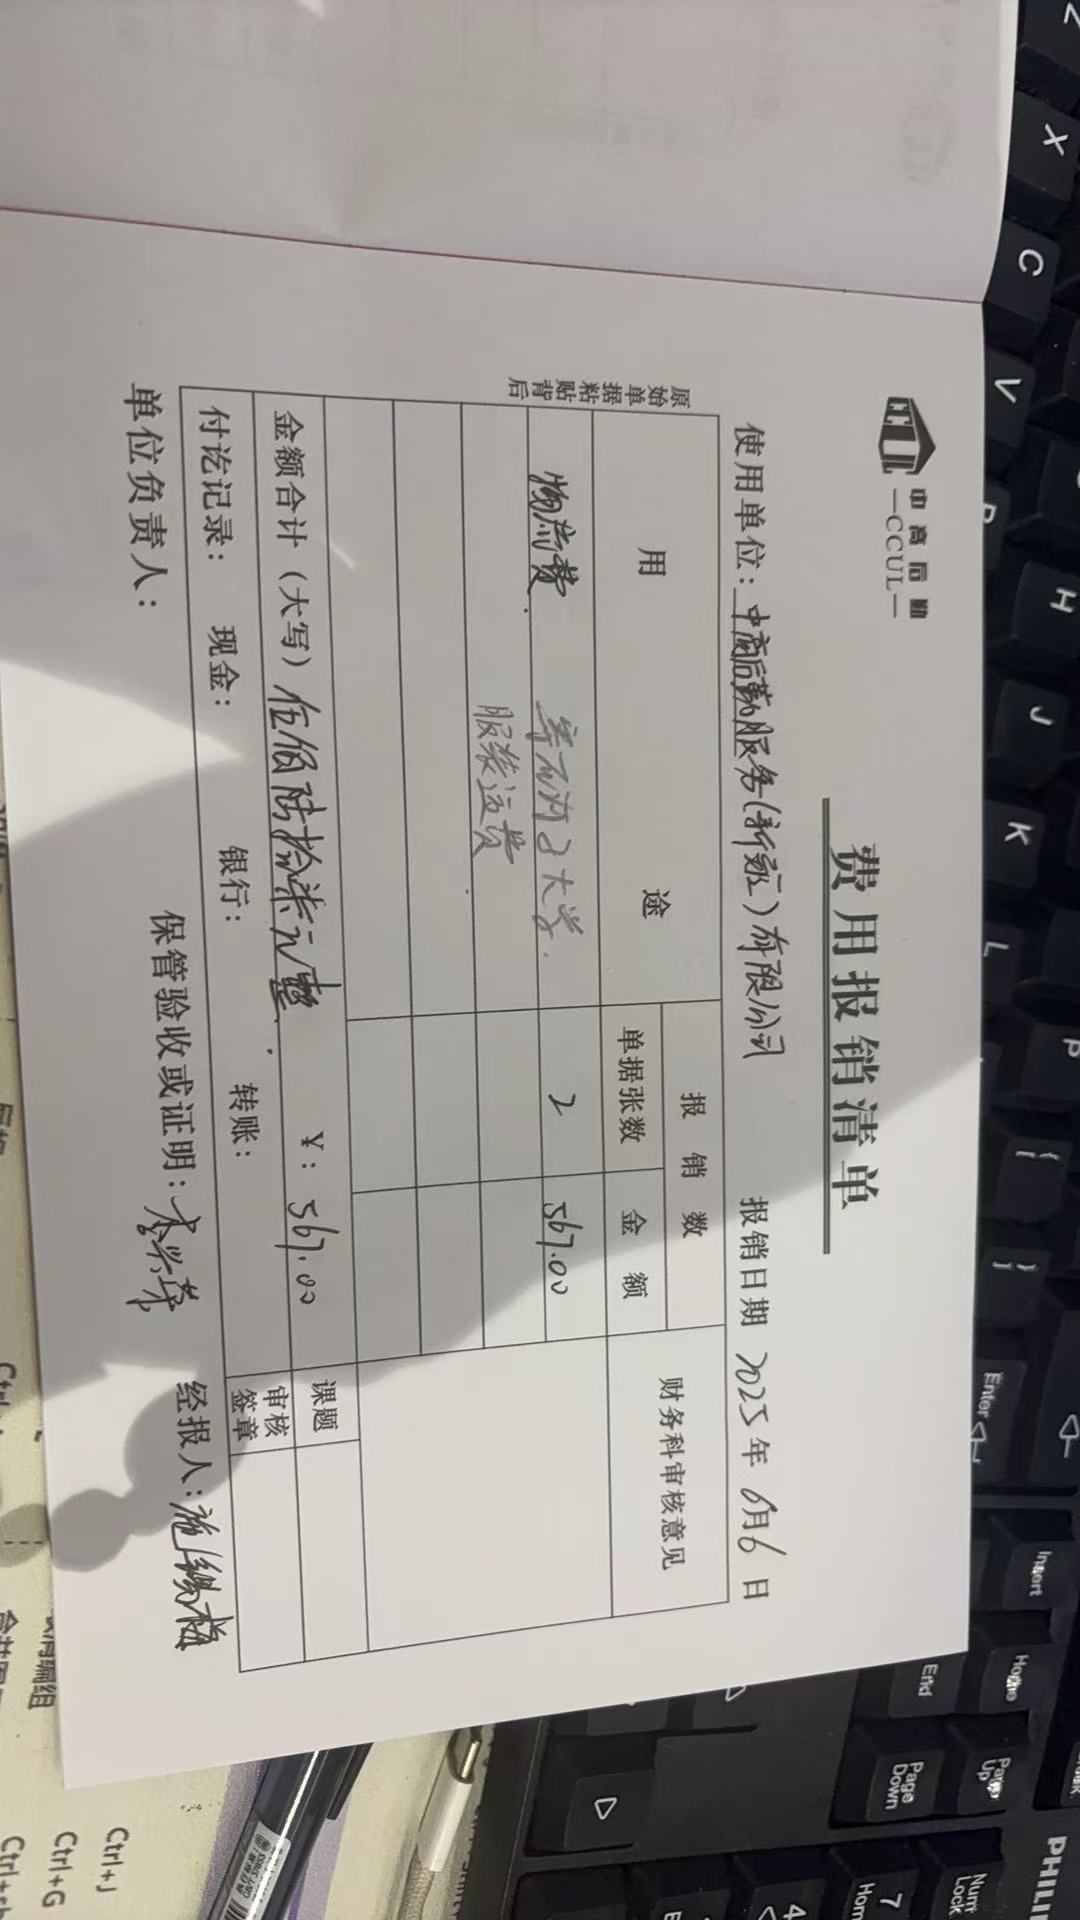 中高后勤
—CCUL—
费用报销清单
使用单位：中高后勤服务(新疆)有限公司 报销日期 2025年6月6日
原始单据粘贴背后
用 途
报 销 数
单据张数
金 额
财务科审核意见
物流费
大学
2
567.00
服装运费
金额合计（大写）伍佰陆拾柒元整 ￥：567.00
课题
付讫记录： 现金： 银行： 转账：
审核签章
单位负责人： 保管验收或证明： 经报人：施
Z
X
C
V
H
J
K
L
P
Enter
Insert
Home
Page Up
End
Page Down
Num Lock
7
4
PHILI
Ctrl+J
Ctrl+G